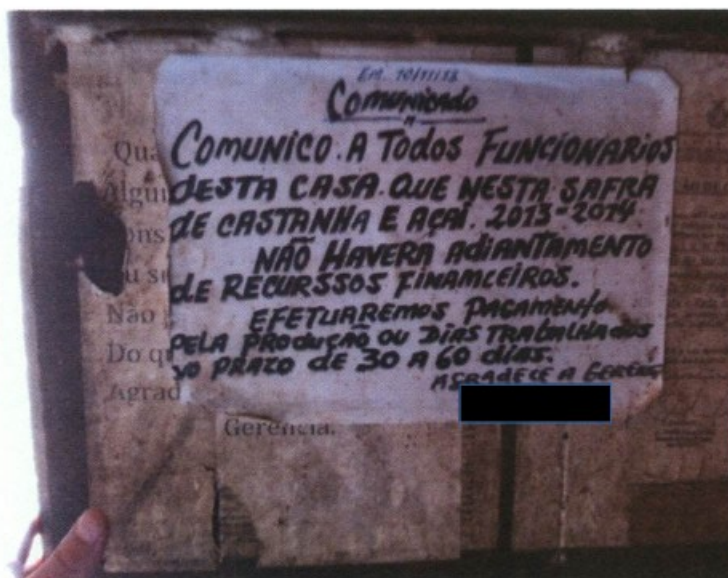 Em. 10/11/13
Comunicado
COMUNICO. A TODOS FUNCIONARIOS
DESTA CASA. QUE NESTA SAFRA
DE CASTANHA E AÇAÍ. 2013-2014
NÃO HAVERÁ ADIANTAMENTO
DE RECURSSOS FINANCEIROS.
EFETUAREMOS PAGAMENTO
PELA PRODUÇÃO OU DIAS TRABALHADOS
NO PRAZO DE 30 A 60 DIAS.
AGRADECE A GERENC
Qua
Algu
ons
u s
Não
Do q
Agrad
Gerencia.